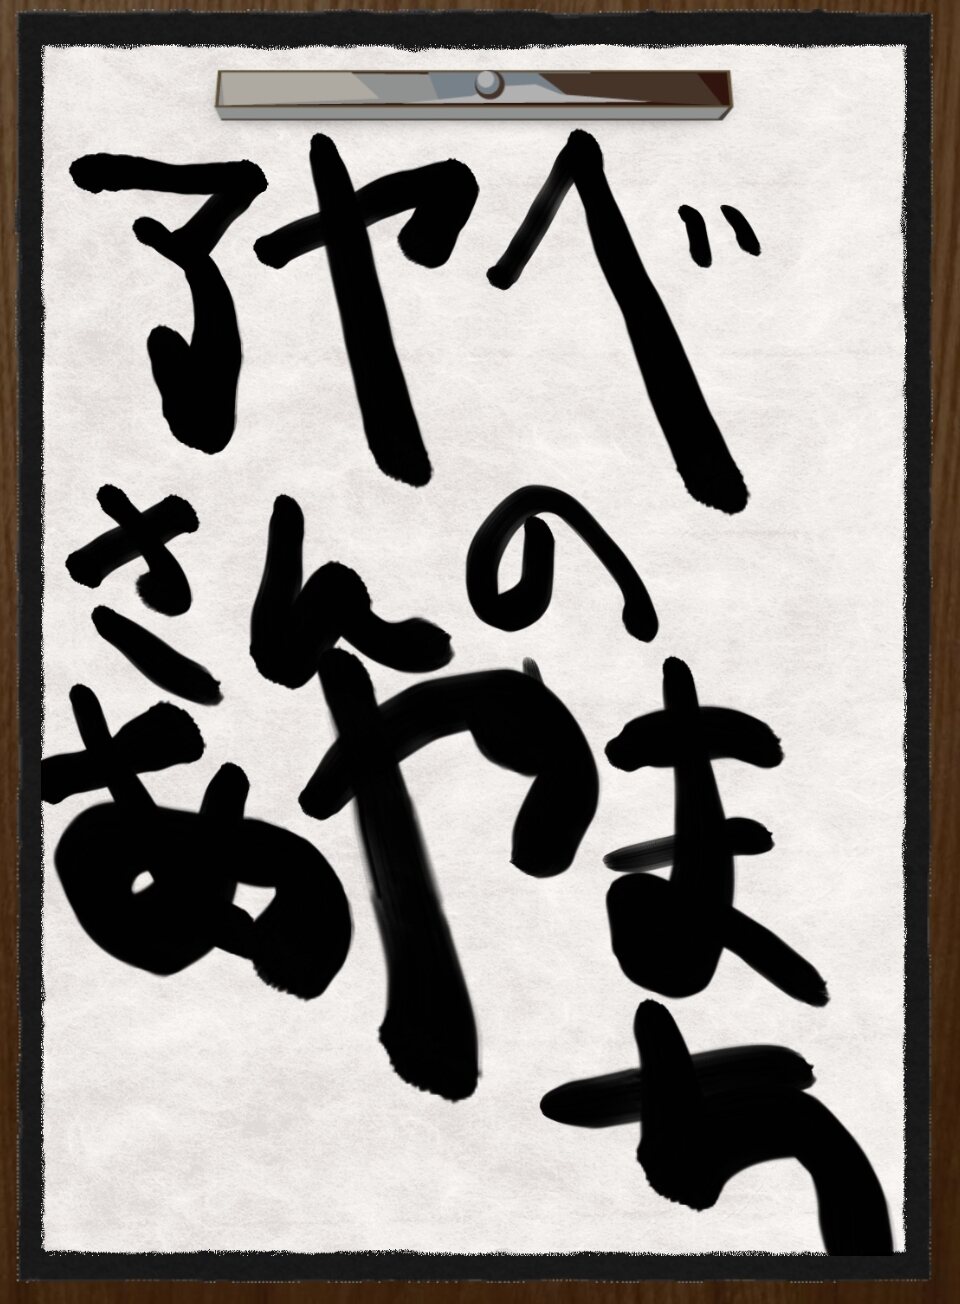 アヤベ
さんの
あやま
ち